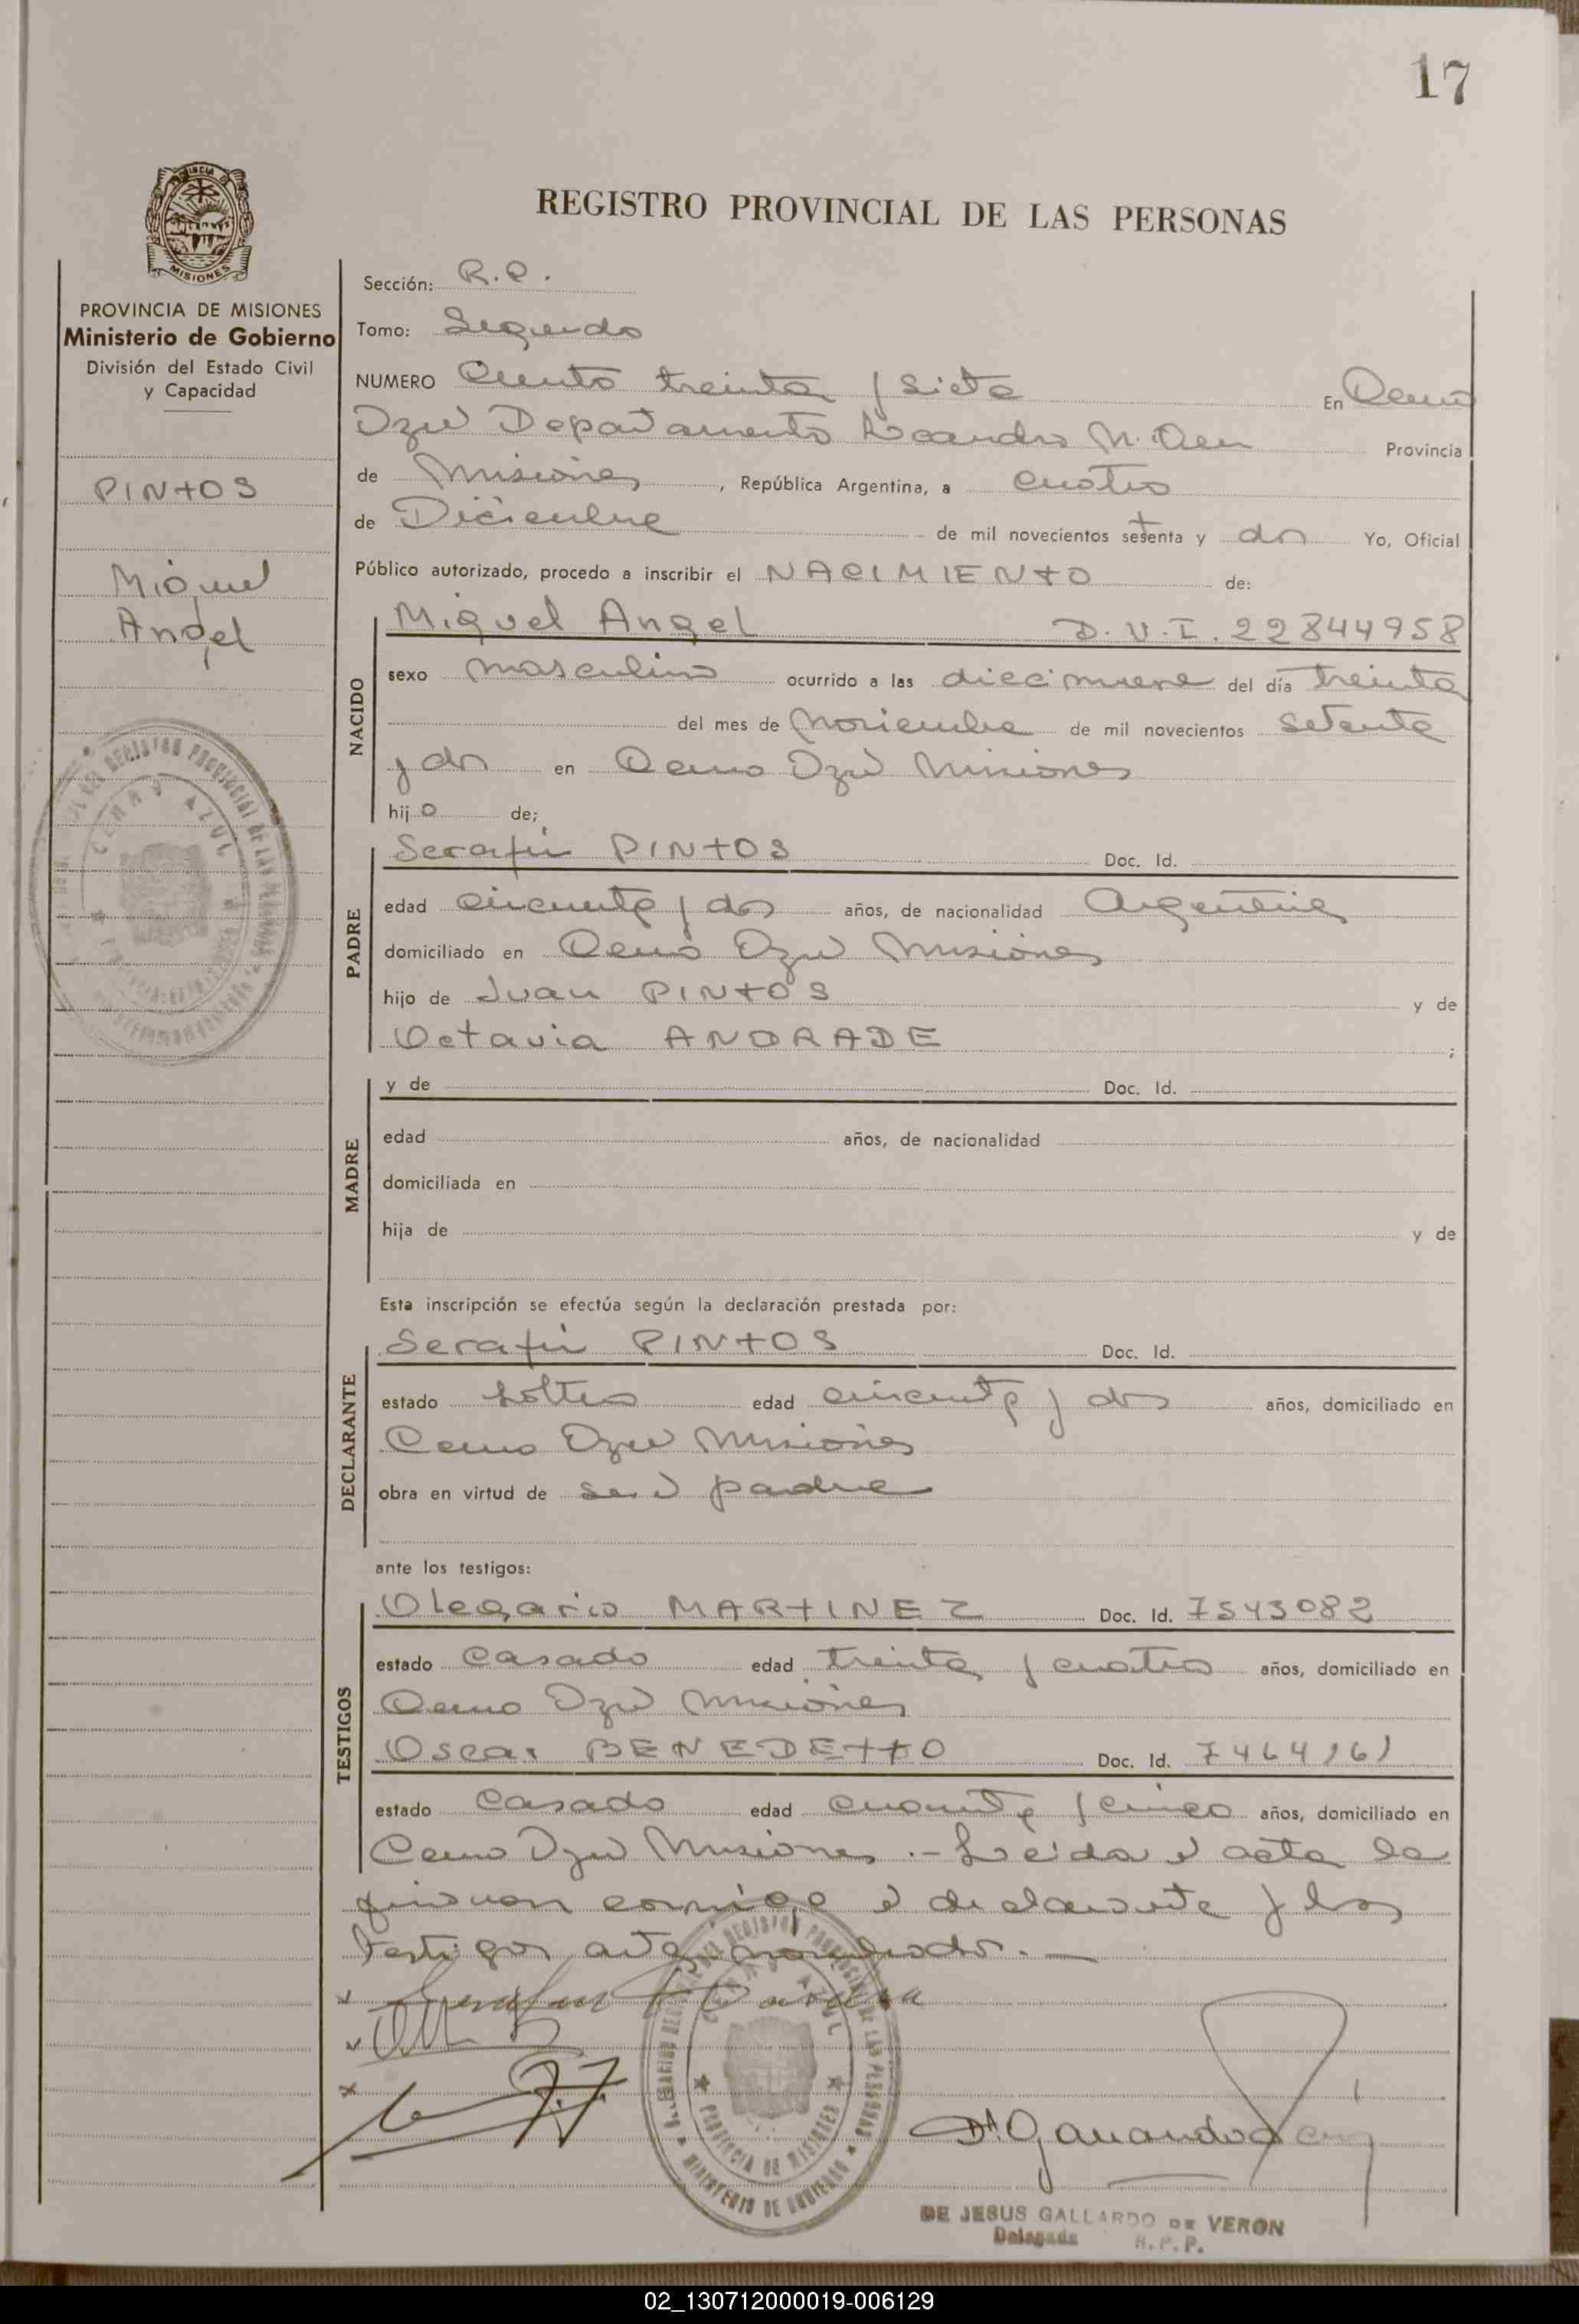 17
PROVINCIA DE MISIONES
Ministerio de Gobierno
División del Estado Civil
y Capacidad
PINTOS
Miguel
Angel
REGISTRO PROVINCIAL DE LAS PERSONAS
Sección: R.P.
Tomo: Segundo
NUMERO Ciento treinta y siete En Cerro
Azul Departamento Leandro N. Alem Provincia
de Misiones, República Argentina, a cuatro
de Diciembre de mil novecientos setenta y dos Yo, Oficial
Público autorizado, procedo a inscribir el NACIMIENTO de:
NACIDO
Miguel Angel D.N.I. 22844958
sexo masculino ocurrido a las diecinueve del día treinta
del mes de Noviembre de mil novecientos setenta
y dos en Cerro Azul Misiones
hijo de;
PADRE
Serafin PINTOS Doc. Id.
edad cincuenta y dos años, de nacionalidad Argentina
domiciliado en Cerro Azul Misiones
hijo de Juan PINTOS y de
Octavia ANDRADE ;
MADRE
y de Doc. Id.
edad años, de nacionalidad
domiciliada en
hija de y de
Esta inscripción se efectúa según la declaración prestada por:
DECLARANTE
Serafin PINTOS Doc. Id.
estado soltero edad cincuenta y dos años, domiciliado en
Cerro Azul Misiones
obra en virtud de ser el padre
ante los testigos:
TESTIGOS
Olegario MARTINEZ Doc. Id. 7543082
estado Casado edad treinta y cuatro años, domiciliado en
Cerro Azul Misiones
Oscar BENEDETTO Doc. Id. 7464161
estado Casado edad cuarenta y cinco años, domiciliado en
Cerro Azul Misiones .- Leida el acta la
firman conmigo el declarante y los
testigos ante nombrados.-
CERRO AZUL
PROVINCIA DE MISIONES
MINISTERIO DE GOBIERNO
DE JESUS GALLARDO DE VERON
Delegada R.P.P.
02_130712000019-006129